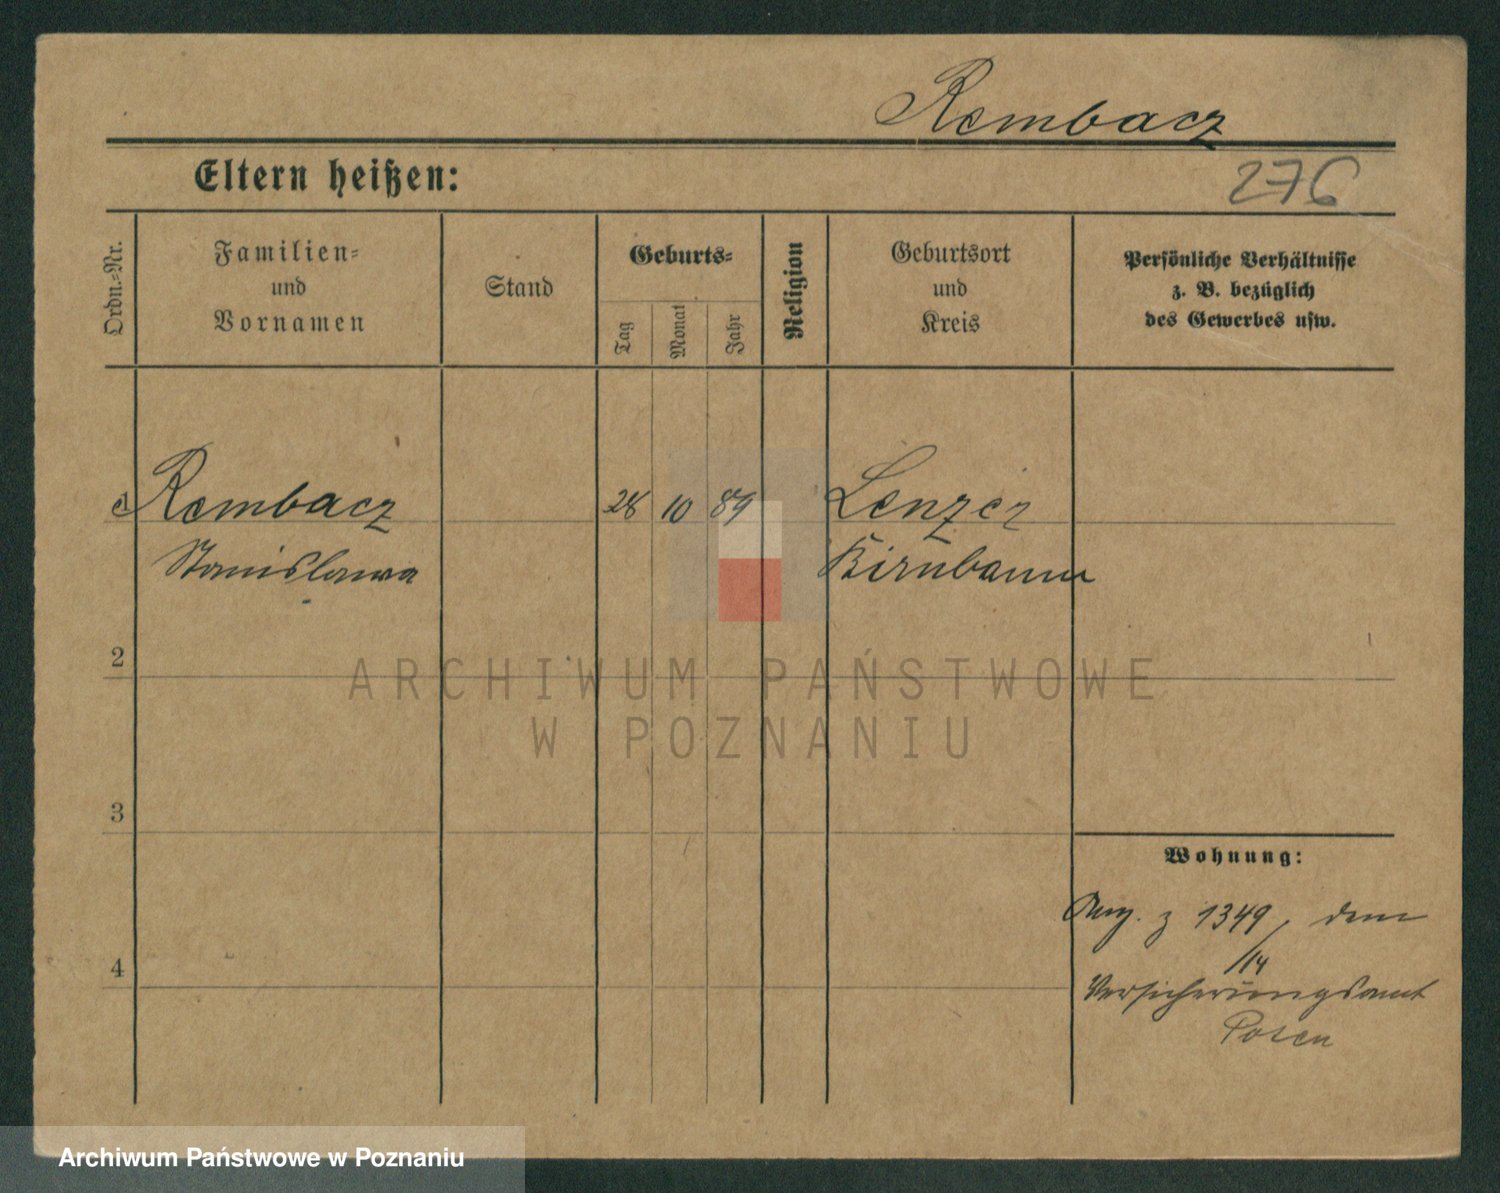 Rembacz
Eltern heißen:
276
Ordn.-Nr.
Familien-
und
Vornamen
Stand
Geburts-
Tag
Monat
Jahr
Religion
Geburtsort
und
Kreis
Persönliche Verhältnisse
z. B. bezüglich
des Gewerbes usw.
1 Rembacz 28 10 89 Lenzer
Stanislawa Birnbaum
2
ARCHIWUM PAŃSTWOWE
W POZNANIU
3
Wohnung:
z 1349, dem
/14
4
Versicherungsamt
Posen
Archiwum Państwowe w Poznaniu